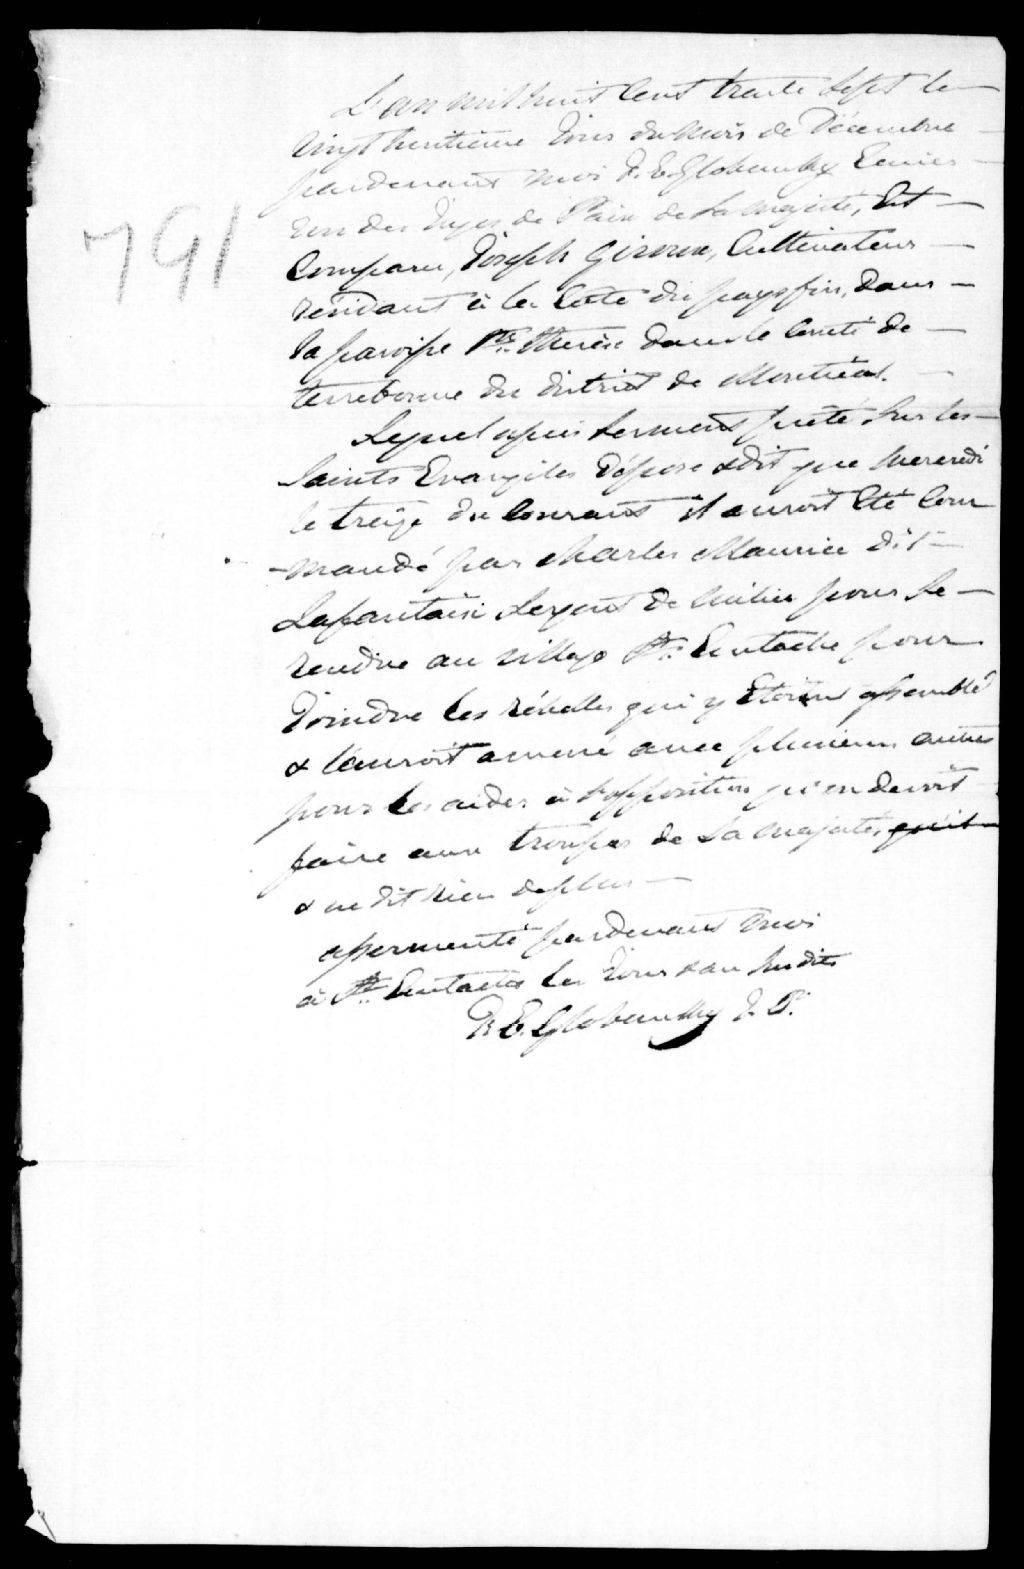 L'an mil huit Cent trente Sept le
vingt huitieme Jour du Mois de Décembre
pardevant moi F. E. Globensky Ecuier
Un des Juges de Paix de Sa Majesté, Est
Comparu, Joseph Giroux, Cultivateur
résidant à la Côte du pays fin, dans
la paroisse Ste. Therèse dans le Comté de
terrebonne du district de Montréal.
Lequel apres Serment preté Sur les
Saints Evangiles dépose & dit que Mercredi
le treize du Courant il auroit Eté Com
791
-mandé par Charles Maurice dit
Lafantaisi Sergent de Milice pour Se
rendre au village St. Eustache pour
Joindre les rébelles qui y Etoient assemblé
& l'auroit amené avec plusieurs autres
pour les aider à l'opposition qu'on devoit
faire aux troupes de Sa Majesté, qu'il
& ne dit rien de plus
assermenté pardevant Moi
à St. Eustache les Jour & an Susdits
F. E. Globensky J. P.